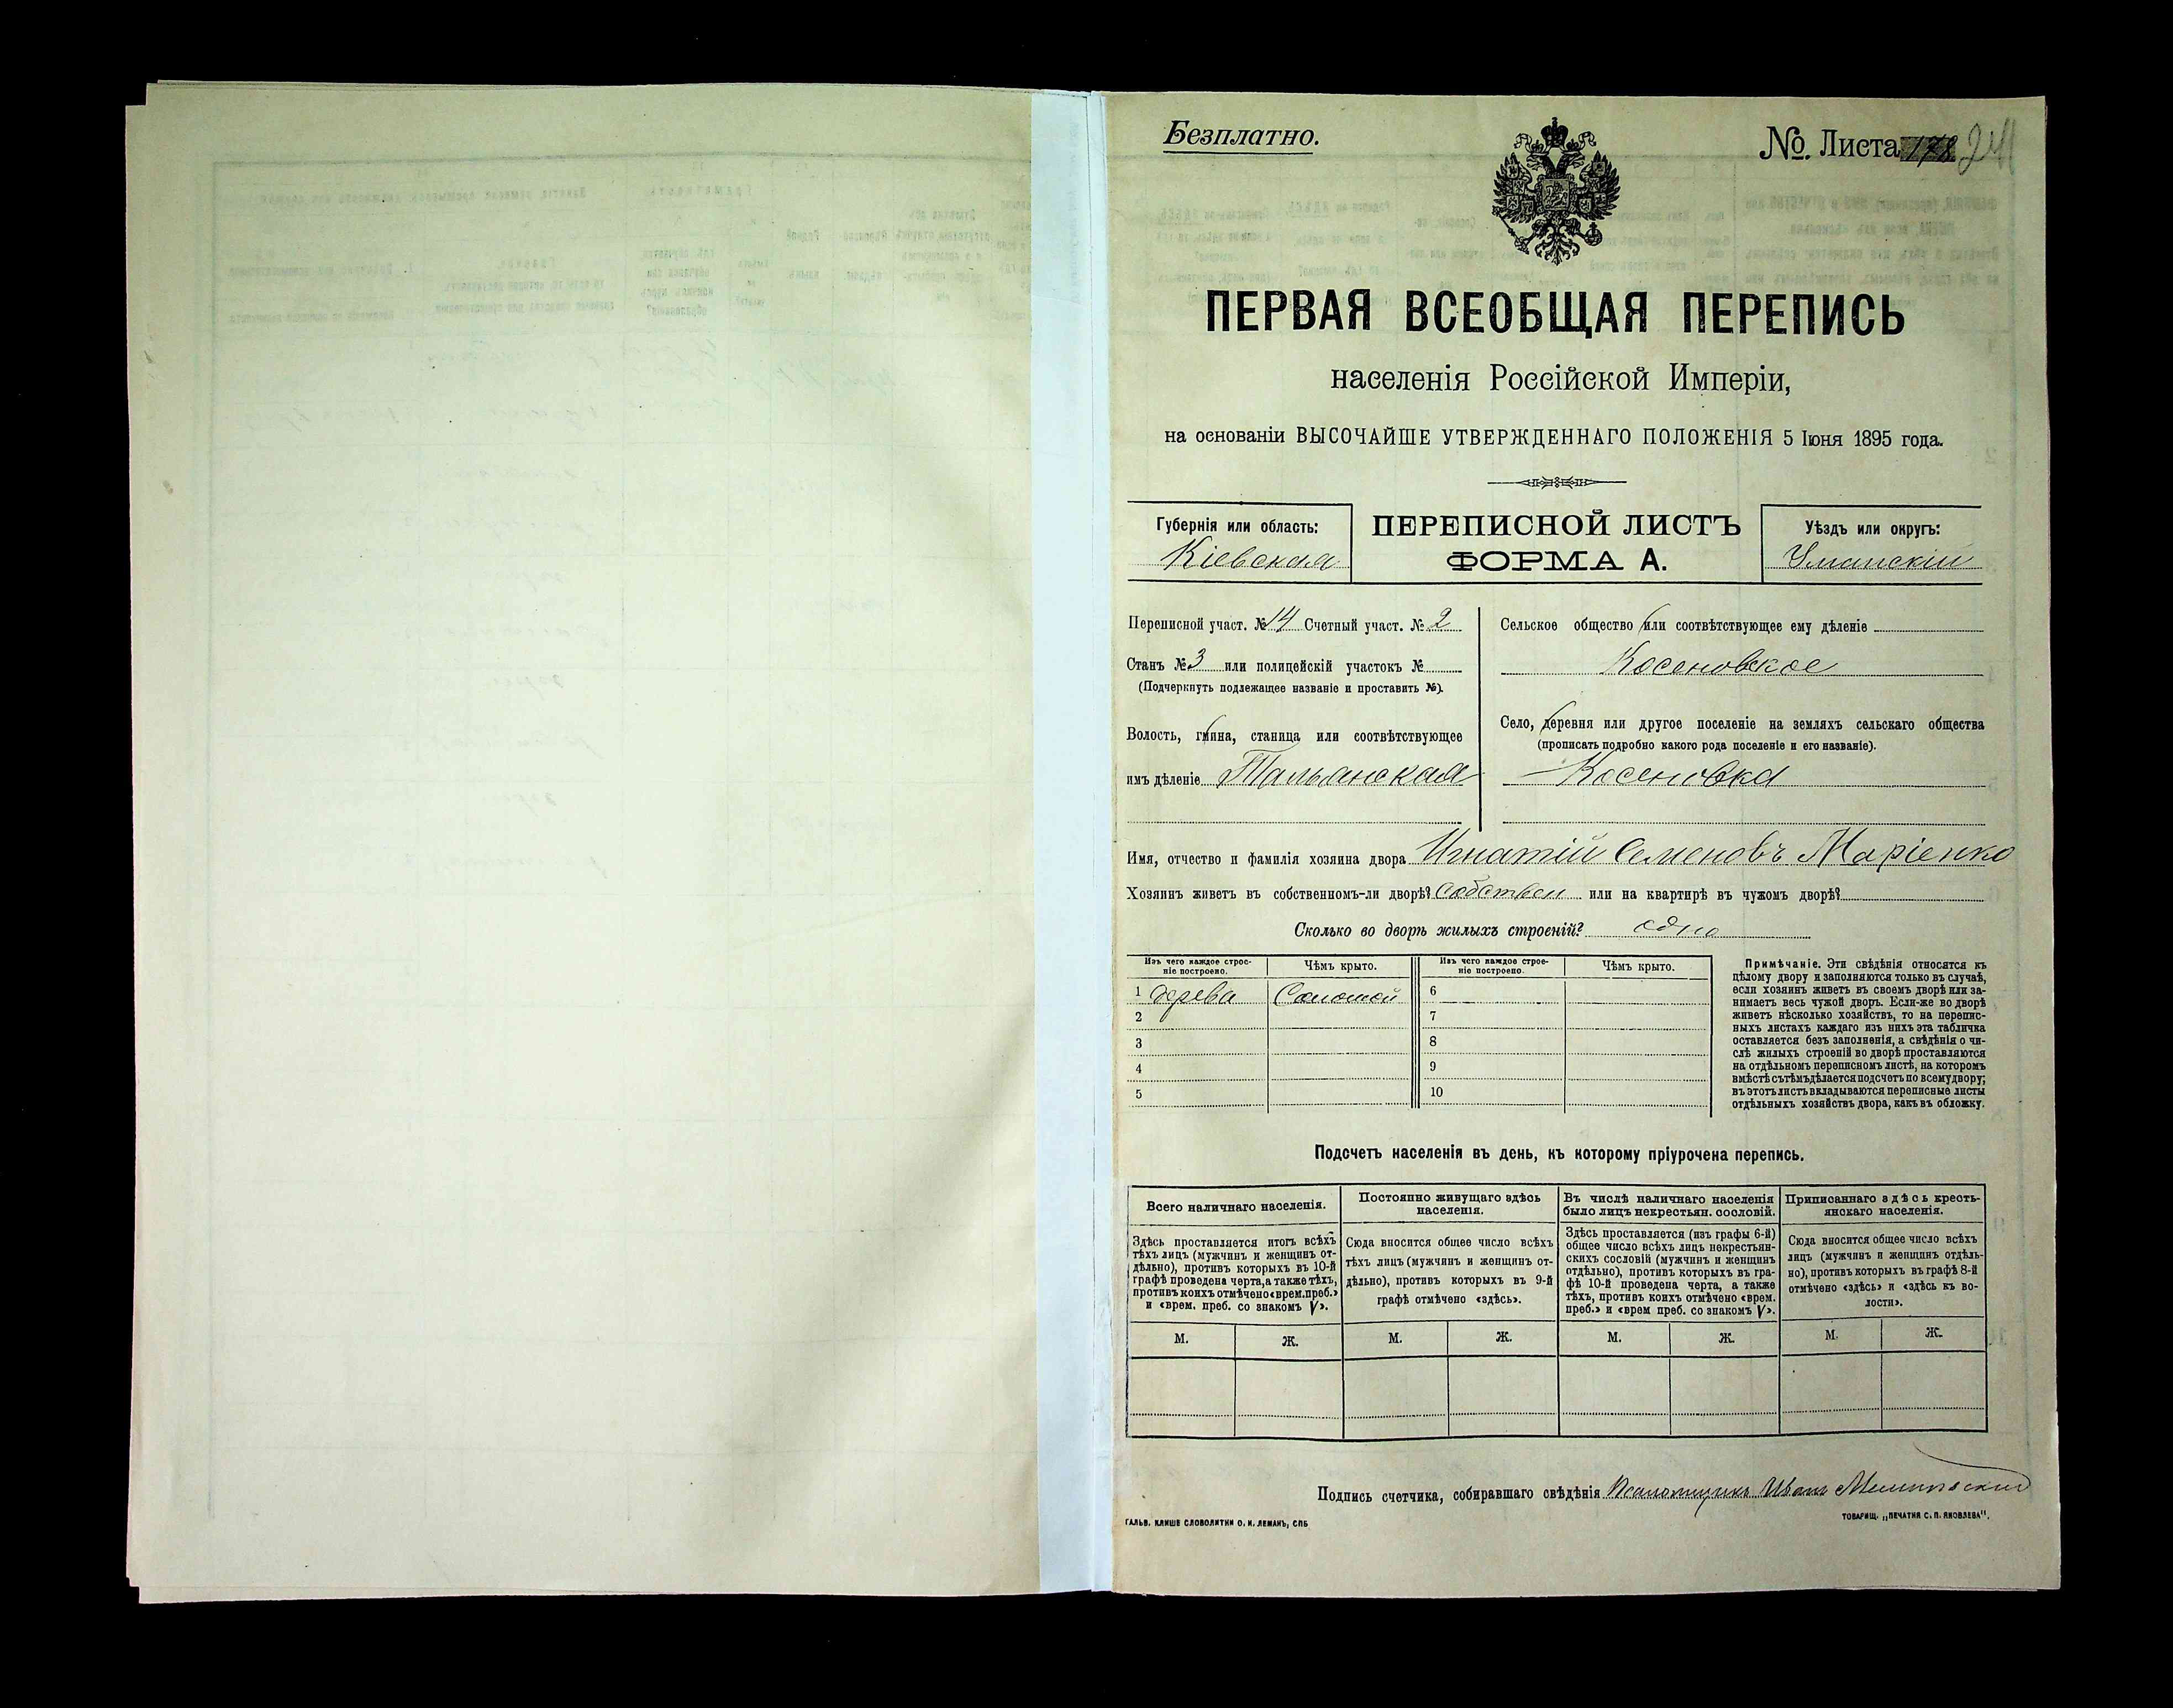 Безплатно.
№. Листа 178 241
ПЕРВАЯ ВСЕОБЩАЯ ПЕРЕПИСЬ
населенія Россійской Имперіи,
на основаніи ВЫСОЧАЙШЕ УТВЕРЖДЕННАГО ПОЛОЖЕНІЯ 5 Іюня 1895 года.
Губернія или область:
Кіевская
ПЕРЕПИСНОЙ ЛИСТЪ
ФОРМА А.
Уѣздъ или округъ:
Уманскій
Переписной участ. № 14 Счетный участ. № 2
Станъ № 3 или полицейскій участокъ №
(Подчеркнуть подлежащее названіе и проставить №).
Волость, гмина, станица или соотвѣтствующее
имъ дѣленіе Тальянская
Сельское общество или соотвѣтствующее ему дѣленіе
Косеновское
Село, деревня или другое поселеніе на земляхъ сельскаго общества
(прописать подробно какого рода поселеніе и его названіе).
Косеновка
Имя, отчество и фамилія хозяина двора Игнатій Семеновъ Маріенко
Хозяинъ живетъ въ собственномъ-ли дворѣ? собствен или на квартирѣ въ чужомъ дворѣ?
Сколько во дворѣ жилыхъ строеній? одно
Изъ чего каждое строе-
ніе построено.
Чѣмъ крыто.
Изъ чего каждое строе-
ніе построено.
Чѣмъ крыто.
1 дерева Соломой 6
2 7
3 8
4 9
5 10
Примѣчаніе. Эти свѣдѣнія относятся къ
цѣлому двору и заполняются только въ случаѣ,
если хозяинъ живетъ въ своемъ дворѣ или за-
нимаетъ весь чужой дворъ. Если-же во дворѣ
живетъ нѣсколько хозяйствъ, то на перепис-
ныхъ листахъ каждаго изъ нихъ эта табличка
оставляется безъ заполненія, а свѣдѣнія о чи-
слѣ жилыхъ строеній во дворѣ проставляются
на отдѣльномъ переписномъ листѣ, на которомъ
вмѣстѣ съ тѣмъ дѣлается подсчетъ по всему двору;
въ этотъ листъ вкладываются переписные листы
отдѣльныхъ хозяйствъ двора, какъ въ обложку.
Подсчетъ населенія въ день, къ которому пріурочена перепись.
Всего наличнаго населенія.
Здѣсь проставляется итогъ всѣхъ
тѣхъ лицъ (мужчинъ и женщинъ от-
дѣльно), противъ которыхъ въ 10-й
графѣ проведена черта, а также тѣхъ,
противъ коихъ отмѣчено «врем. преб.»
и «врем. преб. со знакомъ V».
Постоянно живущаго здѣсь
населенія.
Сюда вносится общее число всѣхъ
тѣхъ лицъ (мужчинъ и женщинъ от-
дѣльно), противъ которыхъ въ 9-й
графѣ отмѣчено «здѣсь».
Въ числѣ наличнаго населенія
было лицъ некрестьян. сословій.
Здѣсь проставляется (изъ графы 6-й)
общее число всѣхъ лицъ некрестьян-
скихъ сословій (мужчинъ и женщинъ
отдѣльно), противъ которыхъ въ гра-
фѣ 10-й проведена черта, а также
тѣхъ, противъ коихъ отмѣчено «врем.
преб.» и «врем преб. со знакомъ V».
Приписаннаго здѣсь кресть-
янскаго населенія.
Сюда вносится общее число всѣхъ
лицъ (мужчинъ и женщинъ отдѣль-
но), противъ которыхъ въ графѣ 8-й
отмѣчено «здѣсь» и «здѣсь къ во-
лости».
М. Ж. М. Ж. М. Ж. М. Ж.
Подпись счетчика, собиравшаго свѣдѣнія Псаломщикъ Иванъ
ГАЛЬВ. КЛИШЕ СЛОВОЛИТНИ О. И. ЛЕМАНЪ, СПБ
ТОВАРИЩ. „ПЕЧАТНЯ С. П. ЯКОВЛЕВА".